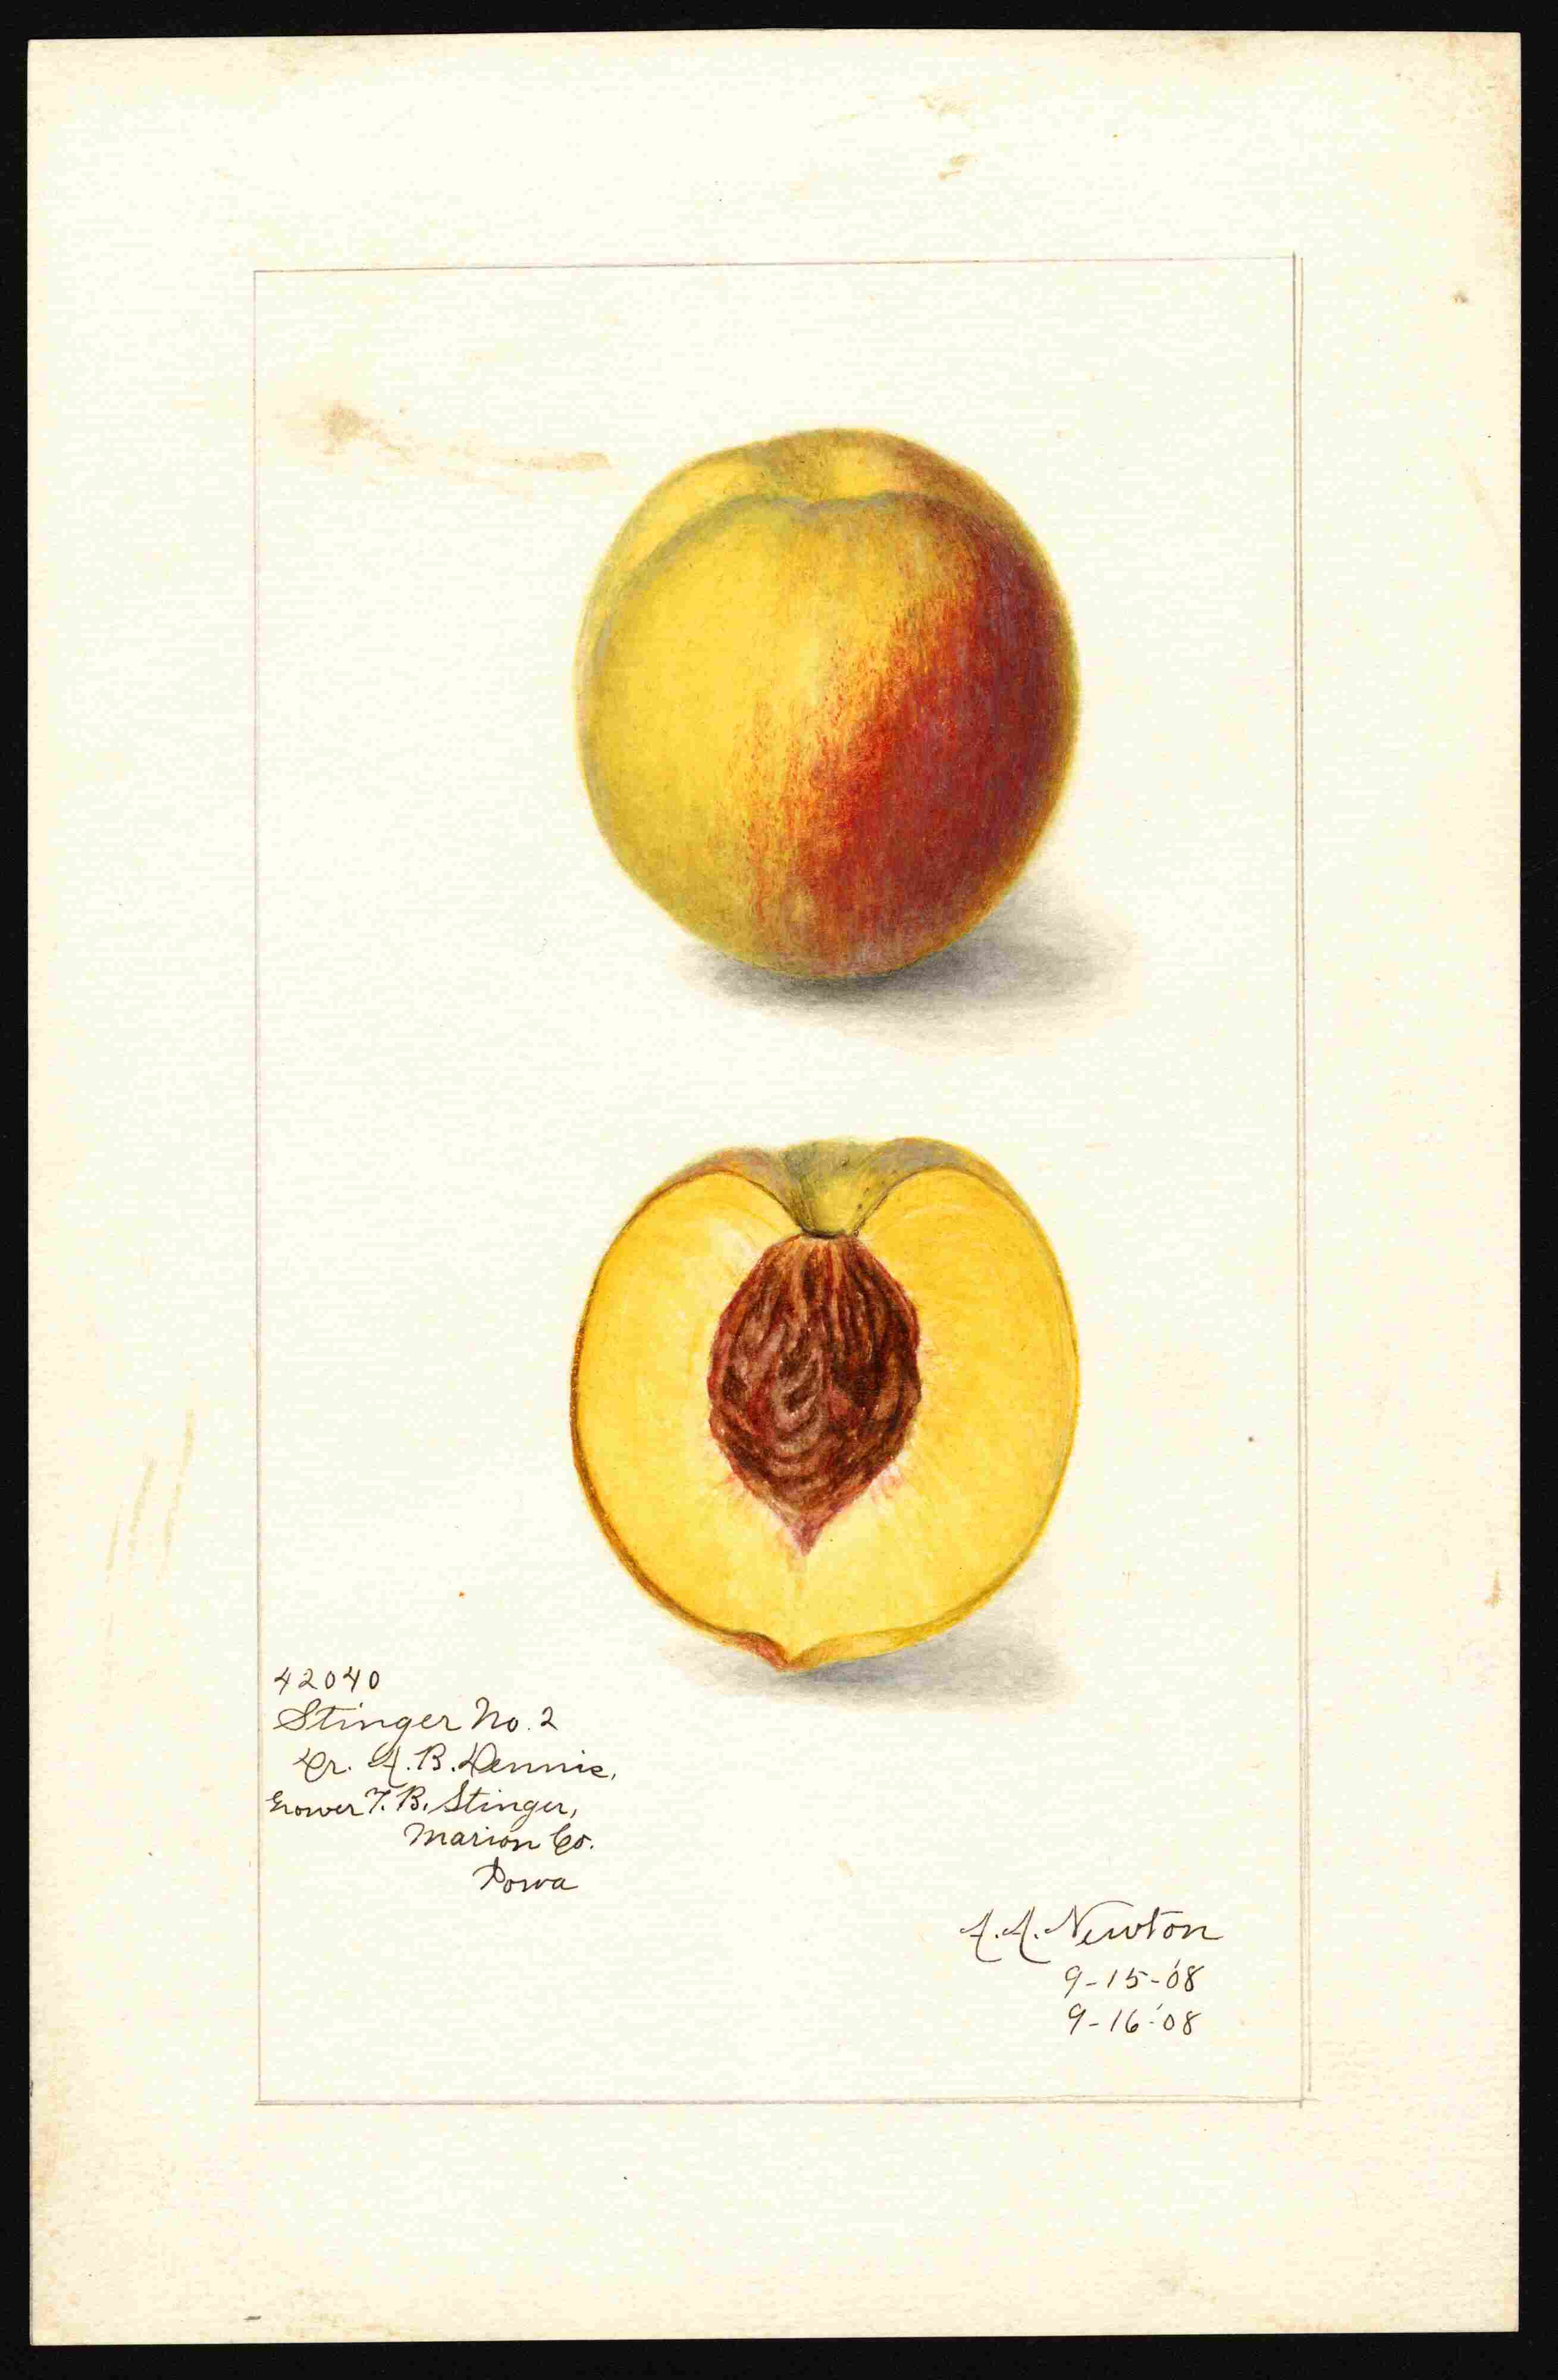 42040
Stinger No. 2
Dr. A. B. Dennis,
Grower F. B. Stinger,
Marion Co.
Iowa
A. A. Newton
9-15-'08
9-16-'08